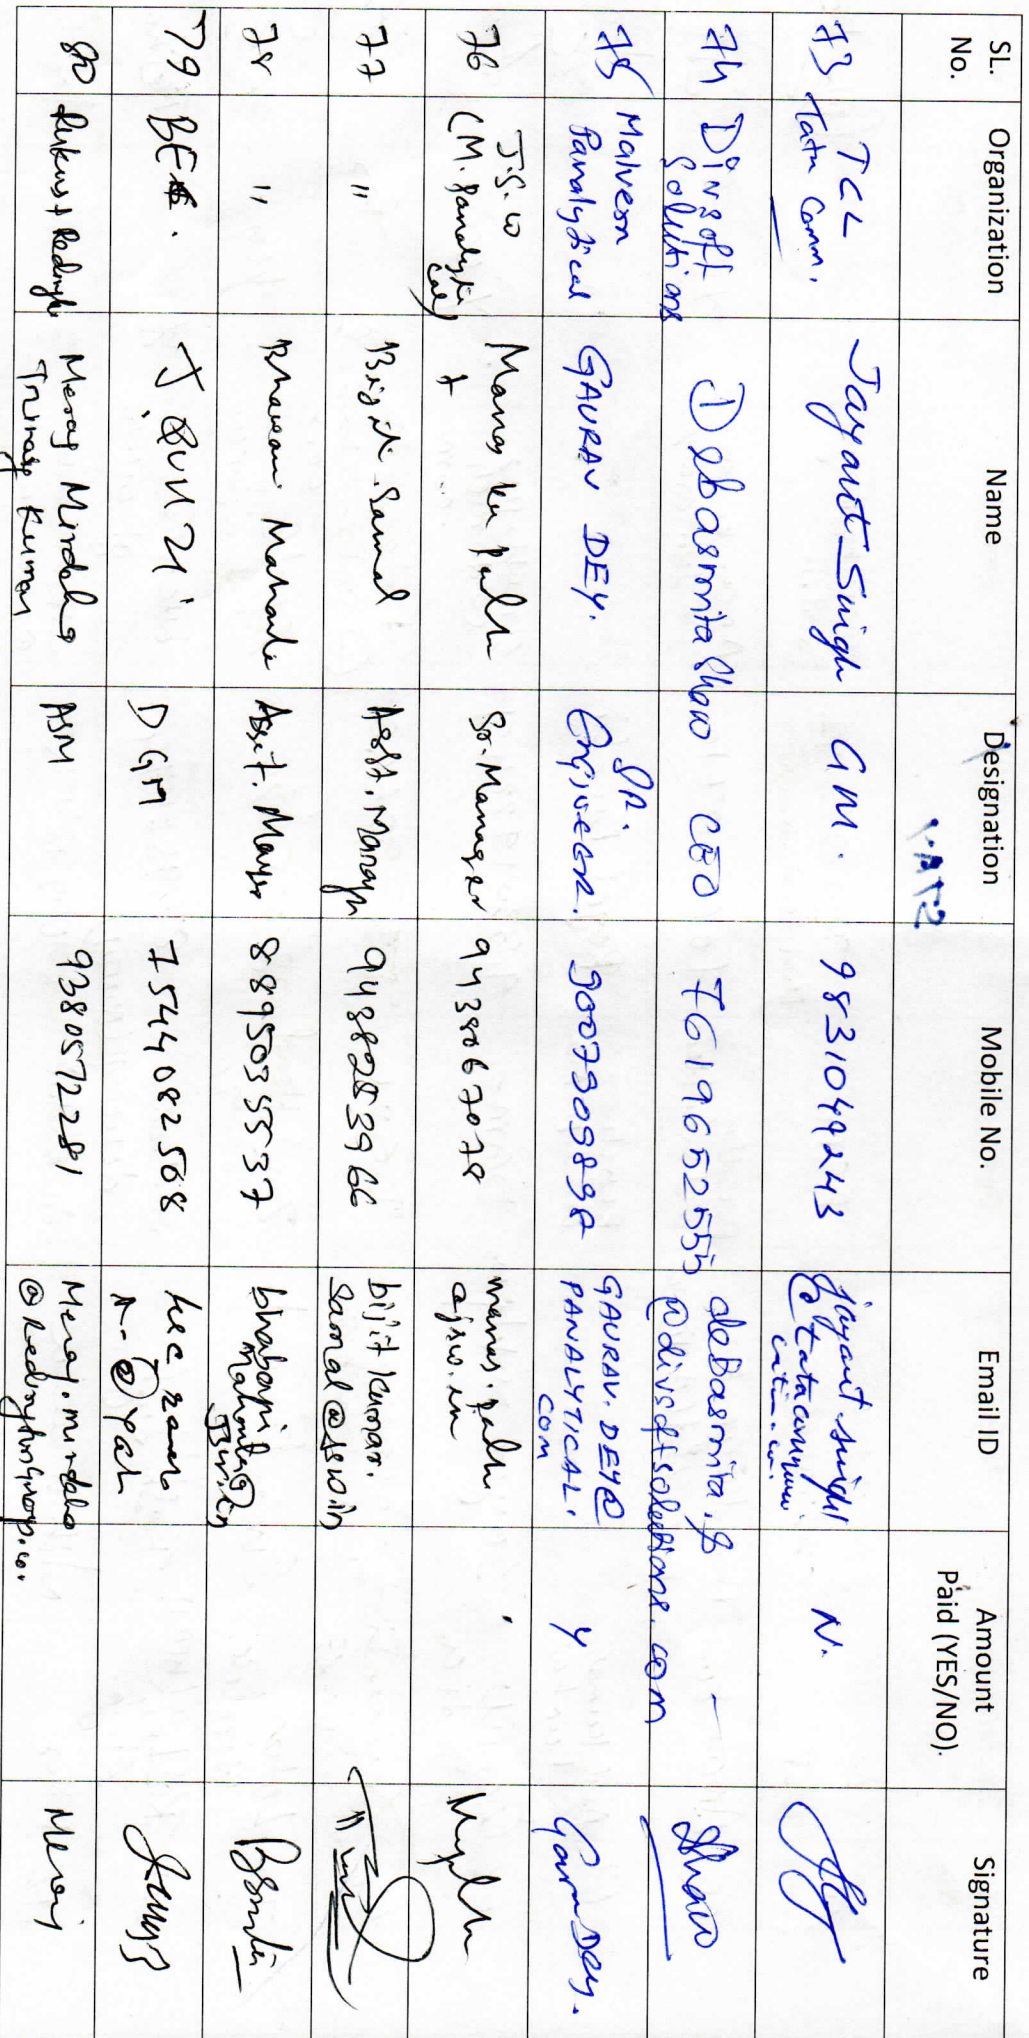 SL. No. Organization Name Designation Mobile No. Email ID Amount Paid (YES/NO). Signature
73 TCL Tata Comm. Jayant Singh GM. 9831049243 jayant.singh1 @tatacommuni N.
74 Divsoft Solutions Debasmita Shaw CEO 7619652555 debasmita.s @divsoftsolutions.com - Shaw
75 Malvern Panalytical GAURAV DEY. SR. Engineer. 9007909898 GAURAV.DEY@ PANALYTICAL. COM Y Gaurav Dey.
76 J.S.W (M. Panalytical) Manas Ku Palu Sr. Manager 9438067078 manas.palu @jsw.in
77 " Bijit Samal Asst. Manager 9438253966 bijit kumar. samal@jsw.in
78 " Bhavani Mahanta Asst. Manager 8895035537 bhabani mahanta@ jsw.in
79 BEC. DGM 7544082508
80 Meraj Mirdaha ASM 9380572281 Meraj.mirdaha @Redingtongroup.com Meraj